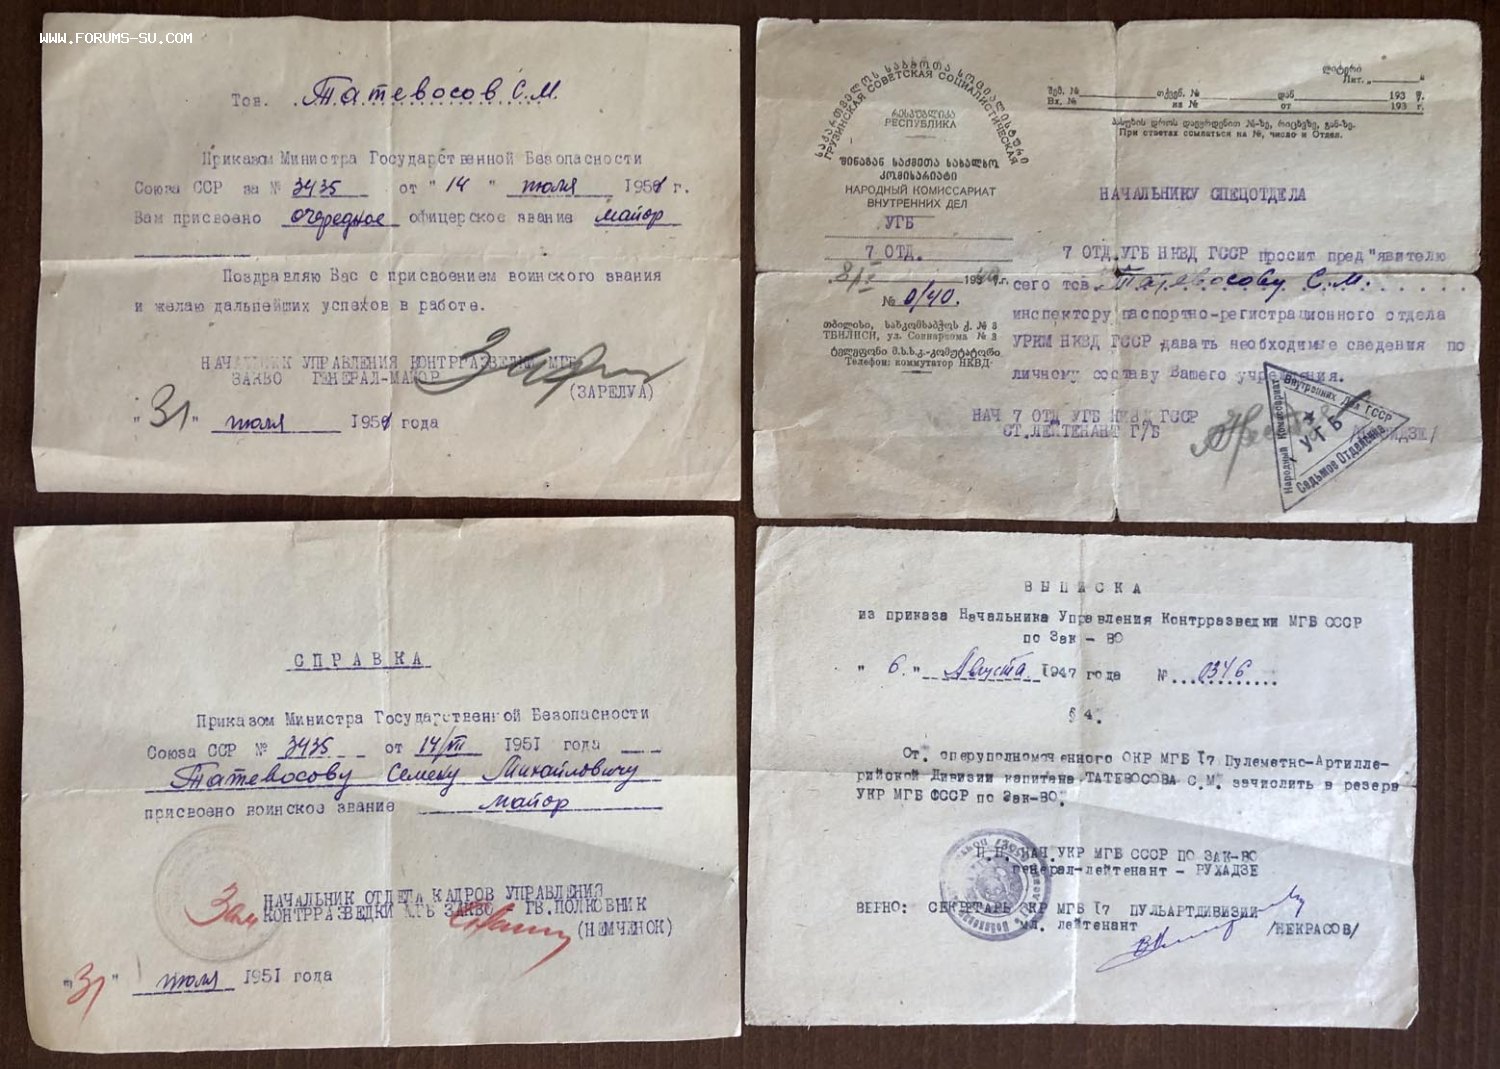 WWW.FORUMS-SU.COM
Тов. Татевосов С.М.
Приказом Министра Государственной Безопасности
Союза ССР за № 3435 от "14" июля 1951 г.
Вам присвоено очередное офицерское звание майор
Поздравляю Вас с присвоением воинского звания
и желаю дальнейших успехов в работе.
НАЧАЛЬНИК УПРАВЛЕНИЯ КОНТРРАЗВЕДКИ МГБ
ЗАКВО ГЕНЕРАЛ-МАЙОР
(ЗАРЕЛУА)
"31" июля 1951 года
საქართველოს საბჭოთა სოციალისტური
ГРУЗИНСКАЯ СОВЕТСКАЯ СОЦИАЛИСТИЧЕСКАЯ
რესპუბლიკა
РЕСПУБЛИКА
შინაგან საქმეთა სახალხო
კომისარიატი
НАРОДНЫЙ КОМИССАРИАТ
ВНУТРЕННИХ ДЕЛ
УГБ
7 ОТД.
31/X 1939 г.
№ 0/40.
თბილისი,
ТБИЛИСИ, ул. Совнаркома № 3
Телефон: коммутатор НКВД
ლიტერი
Лит. "
შემ. № თქვენ. № დან 193 წ.
Вх. № на № от 193 г.
პასუხის დროს დაეყრდენით №-ზე, რიცხვზე, გან-ზე.
При ответах ссылаться на №, число и Отдел.
НАЧАЛЬНИКУ СПЕЦОТДЕЛА
7 ОТД.УГБ НКВД ГССР просит пред"явителю
сего тов. Татевосову С.М.
инспектору паспортно-регистрационного отдела
УРКМ НКВД ГССР давать необходимые сведения по
личному составу Вашего учреждения.
НАЧ 7 ОТД УГБ НКВД ГССР
СТ.ЛЕЙТЕНАНТ Г/Б
Народный Комиссариат Внутренних Дел ГССР
УГБ
Седьмое Отделение
СПРАВКА
Приказом Министра Государственной Безопасности
Союза ССР № 3435 от 14/VII 1951 года
Татевосову Семену Михайловичу
присвоено воинское звание майор
Зам НАЧАЛЬНИК ОТДЕЛА КАДРОВ УПРАВЛЕНИЯ
КОНТРРАЗВЕДКИ МГБ ЗАКВО ГВ.ПОЛКОВНИК
(НЕМЧЕНОК)
"31" июля 1951 года
ВЫПИСКА
из приказа Начальника Управления Контрразведки МГБ СССР
по Зак - ВО
"6." Августа. 1947 года № 0346
§ 4.
Ст. оперуполномоченного ОКР МГБ 17 Пулеметно-Артилле-
рийской Дивизии капитана ТАТЕВОСОВА С.М. зачислить в резерв
УКР МГБ СССР по Зак-ВО.
П.П. НАЧ.УКР МГБ СССР ПО ЗАК-ВО
генерал-лейтенант - РУХАДЗЕ
ВЕРНО: СЕКРЕТАРЬ ОКР МГБ 17 ПУЛЬАРТДИВИЗИИ
мл. лейтенант /НЕКРАСОВ/